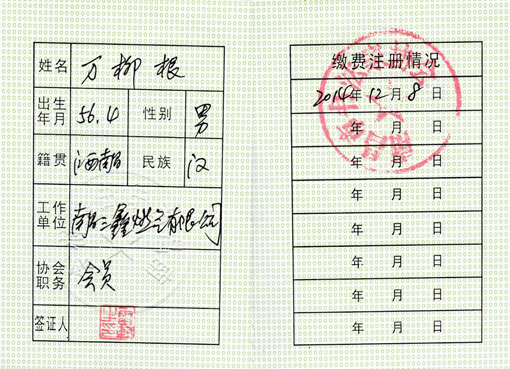 姓名 万柳根
出生年月 56.4 性别 男
籍贯 江西南昌 民族 汉
工作单位 南昌三鑫燃气有限公司
协会职务 会员
签证人
缴费注册情况
2014年12月8日
年 月 日
年 月 日
年 月 日
年 月 日
年 月 日
年 月 日
年 月 日